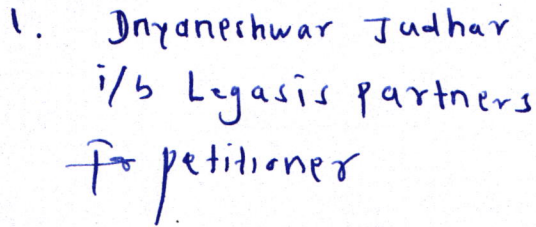 1. Dnyaneshwar Judhar
i/b Legasis partners
For petitioner